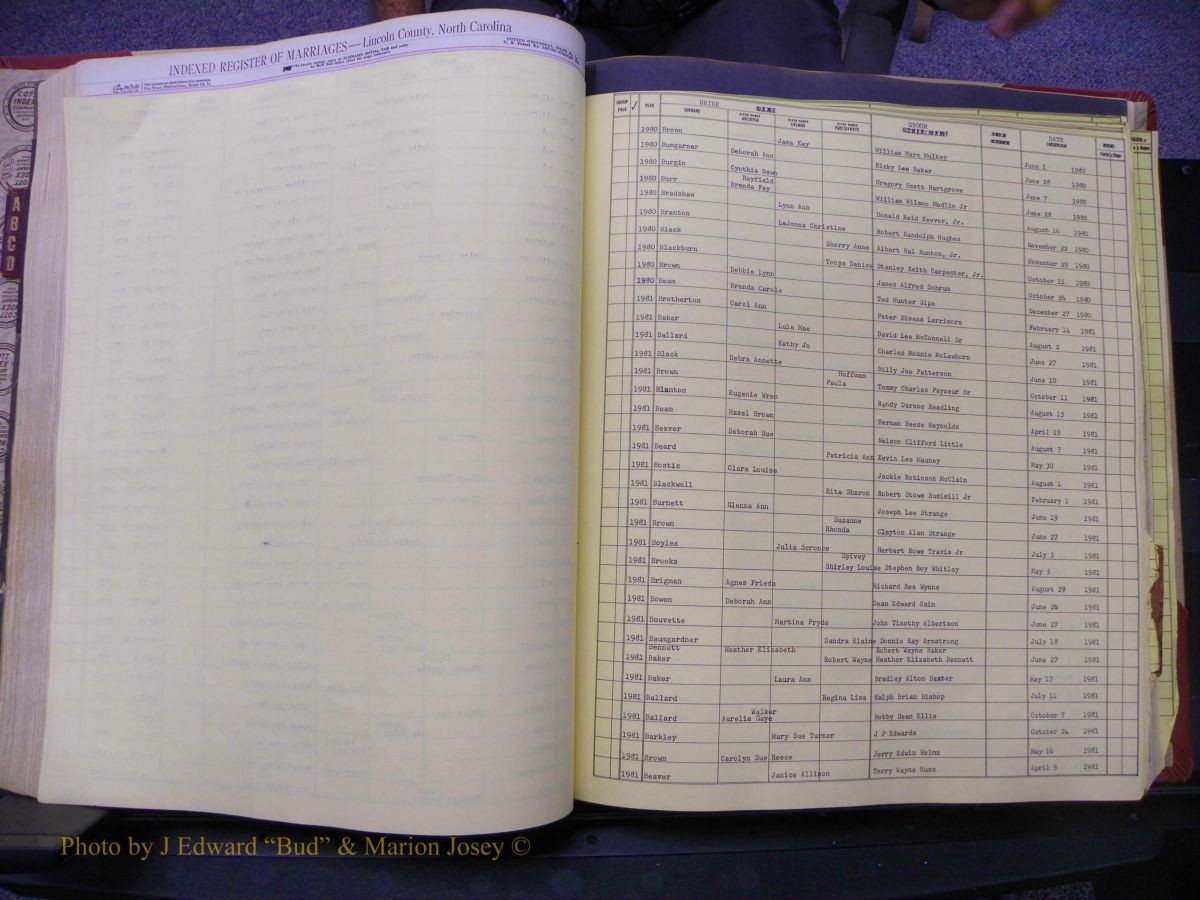 INDEXED REGISTER OF MARRIAGES—Lincoln County, North Carolina
GROUP PAGE ✓ YEAR BRIDE SURNAME NAME GROOM DATE
1980 Brown Jama Kay William Marc Mulkey June 1 1980
1980 Bumgarner Deborah Ann Ricky Lee Baker June 28 1980
1980 Burgin Cynthia Dawn Gregory Scott Hartgrove June 7 1980
1980 Burr Rayfield Brenda Fay William Wilson Modlin Jr June 28 1980
1980 Bradshaw Lynn Ann Donald Reid Keever, Jr. August 16 1980
1980 Branton LaJonna Christine Robert Randolph Hughes November 22 1980
1980 Black Sharry Anne Albert Hal Sunton, Jr. November 29 1980
1980 Blackburn Tonya Denise Stanley Keith Carpenter, Jr. October 11 1980
1980 Brown Debbie Lynn James Alfred Schrum October 26 1980
1980 Beam Brenda Carole Ted Hunter Sipe December 27 1980
1981 Brotherton Carol Ann Peter Bivens Larrimore February 14 1981
1981 Baker Lula Mae David Lee McConnell Sr August 2 1981
1981 Ballard Kathy Jo Charles Monnie McLawhorn June 27 1981
1981 Black Debra Annette Billy Joe Patterson June 10 1981
1981 Brown Hoffman Paula Tommy Charles Payseur Sr October 11 1981
1981 Blanton Eugenie Wren Randy Darene Readling August 15 1981
1981 Beam Hazel Brown Herman Reese Reynolds April 19 1981
1981 Beaver Deborah Sue Nelson Clifford Little August 7 1981
1981 Beard Patricia Ann Kevin Lee Mauney May 30 1981
1981 Bostic Clara Louise Jackie Robinson McClain August 1 1981
1981 Blackwell Rita Sharon Robert Stowe Rudisill Jr February 1 1981
1981 Burnett Glenna Ann Joseph Lee Strange June 19 1981
1981 Brown Suzanne Rhonda Clayton Alan Strange June 27 1981
1981 Boyles Julia Scronce Herbert Rowe Travis Jr July 3 1981
1981 Brooks Spivey Shirley Louise Stephen Roy Whitley May 5 1981
1981 Brigman Agnes Frieda Richard Rea Wynne August 29 1981
1981 Bowen Deborah Ann Dean Edward Sain June 26 1981
1981 Bouvette Martina Pryde John Timothy Albertson June 27 1981
1981 Baumgardner Sandra Elaine Donnie Ray Armstrong July 18 1981
Bennett Heather Elizabeth Robert Wayne Baker
1981 Baker Robert Wayne Heather Elizabeth Bennett June 27 1981
1981 Baker Laura Ann Bradley Alton Baxter May 17 1981
1981 Ballard Regina Lisa Ralph Brian Bishop July 11 1981
1981 Ballard Walker Aurelia Gaye Bobby Dean Ellis October 7 1981
1981 Barkley Mary Sue Turner J P Edwards October 24 1981
1981 Brown Carolyn Sue Reece Jerry Edwin Helms May 16 1981
1981 Beaver Janice Allison Terry Wayne Huss April 5 1981
A B C D
Photo by J Edward “Bud” & Marion Josey ©